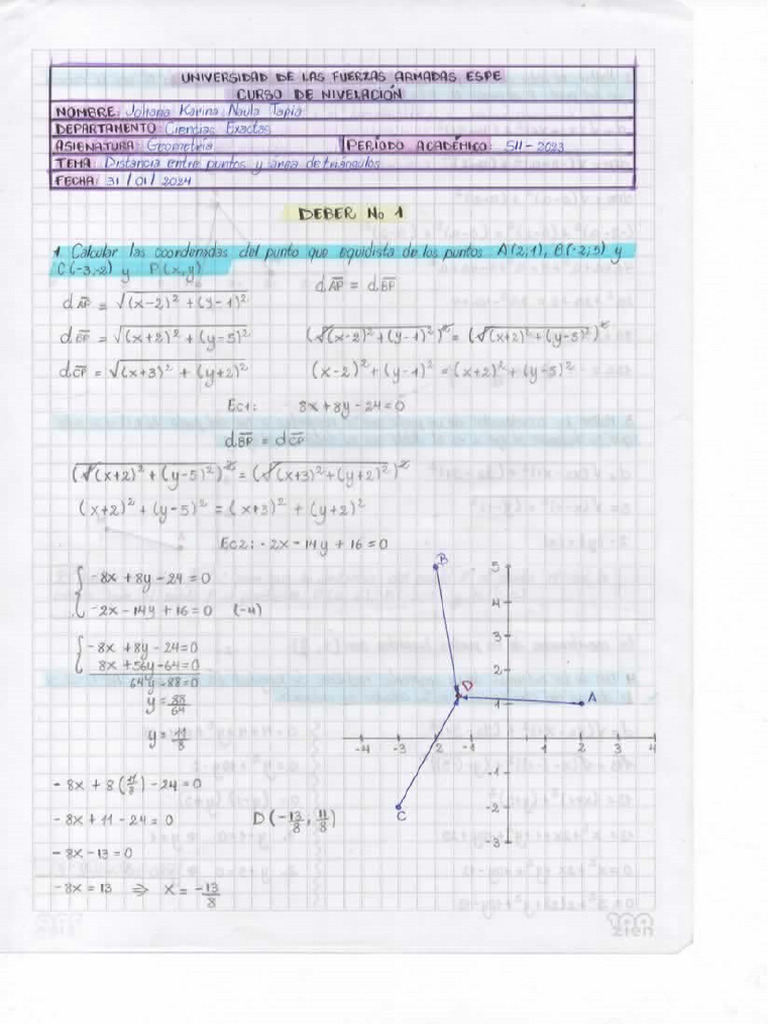 UNIVERSIDAD DE LAS FUERZAS ARMADAS ESPE
CURSO DE NIVELACIÓN
NOMBRE: Johana Karina Naula Tapia
DEPARTAMENTO: Ciencias Exactas
ASIGNATURA: Geometría PERÍODO ACADÉMICO: SII-2023
TEMA: Distancia entre puntos y área de triángulos
FECHA: 31/01/2024
DEBER No 1
1. Calcular las coordenadas del punto que equidista de los puntos A(2;1), B(-2;5) y
C(-3,-2) y P(x,y)
d AP = √(x-2)² + (y-1)² dAP = dBP
dBP = √(x+2)² + (y-5)² (√(x-2)² + (y-1)²)² = (√(x+2)² + (y-5)²)²
dCP = √(x+3)² + (y+2)² (x-2)² + (y-1)² = (x+2)² + (y-5)²
Ec1: 8x+8y-24=0
dBP = dCP
(√(x+2)² + (y-5)²)² = (√(x+3)² + (y+2)²)²
(x+2)² + (y-5)² = (x+3)² + (y+2)²
Ec2: -2x-14y+16=0
-8x+8y-24=0
-2x-14y+16=0 (-4)
-8x+8y-24=0
8x+56y-64=0
64y-88=0
y=88/64
y=11/8
-8x+8(11/8)-24=0
-8x+11-24=0 D(-13/8, 11/8)
-8x-13=0
-8x=13 ⇒ x=-13/8
B
5
4
3
2
D
A
1
-4 -3 2 -1 1 2 3 4
-1
-2
C
-3
zien